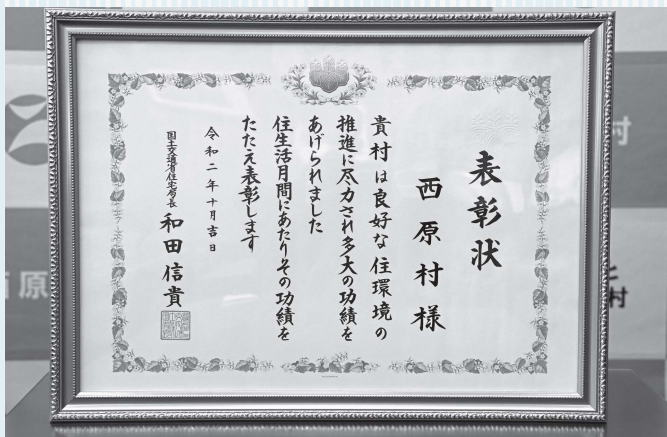 表彰状
西原村様
貴村は良好な住環境の
推進に尽力され多大の功績を
あげられました
住生活月間にあたりその功績を
たたえ表彰します
令和二年十月吉日
国土交通省住宅局長 和田信貴
村
原
村